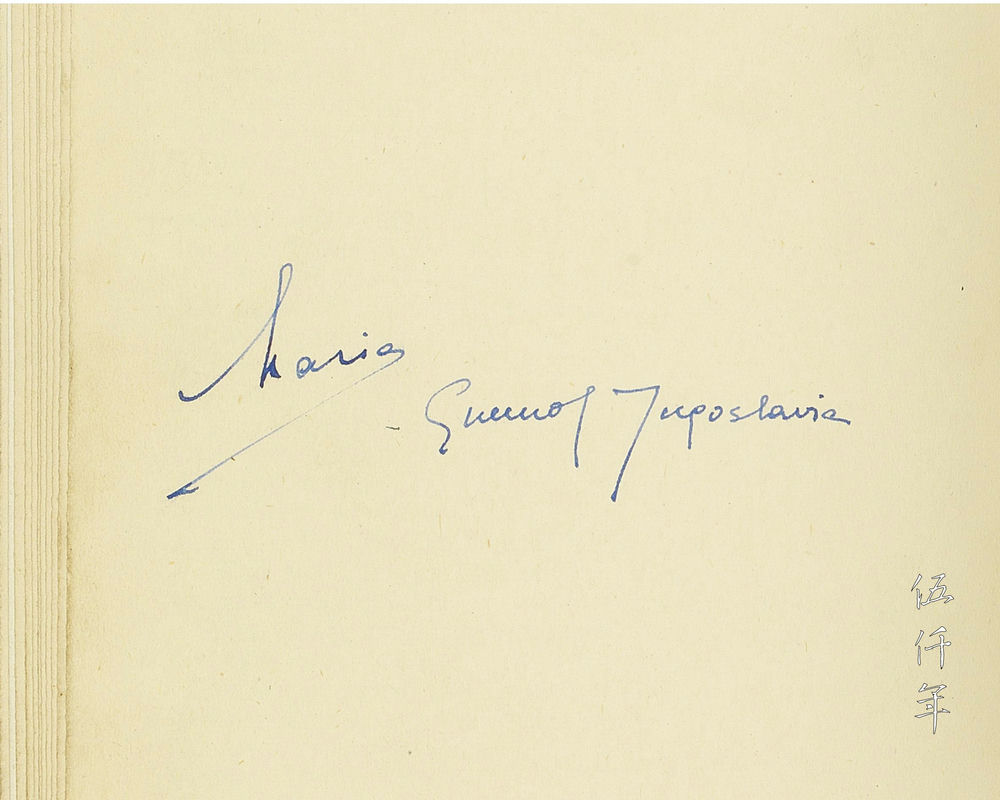 Maria
Queen of Jugoslavia
伍仟年